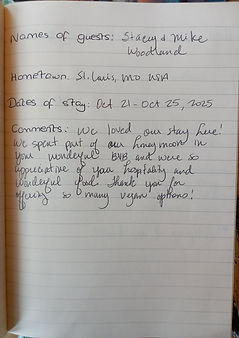 Names of guests: Stacey & Mike
Woodland
Hometown: St. Louis, MO USA
Dates of stay: Oct 21 - Oct 25, 2025
Comments: We loved our stay here!
We spent part of our honeymoon in
your wonderful BNB and were so
appreciative of your hospitality and
wonderful food. Thank you for
offering so many vegan options!